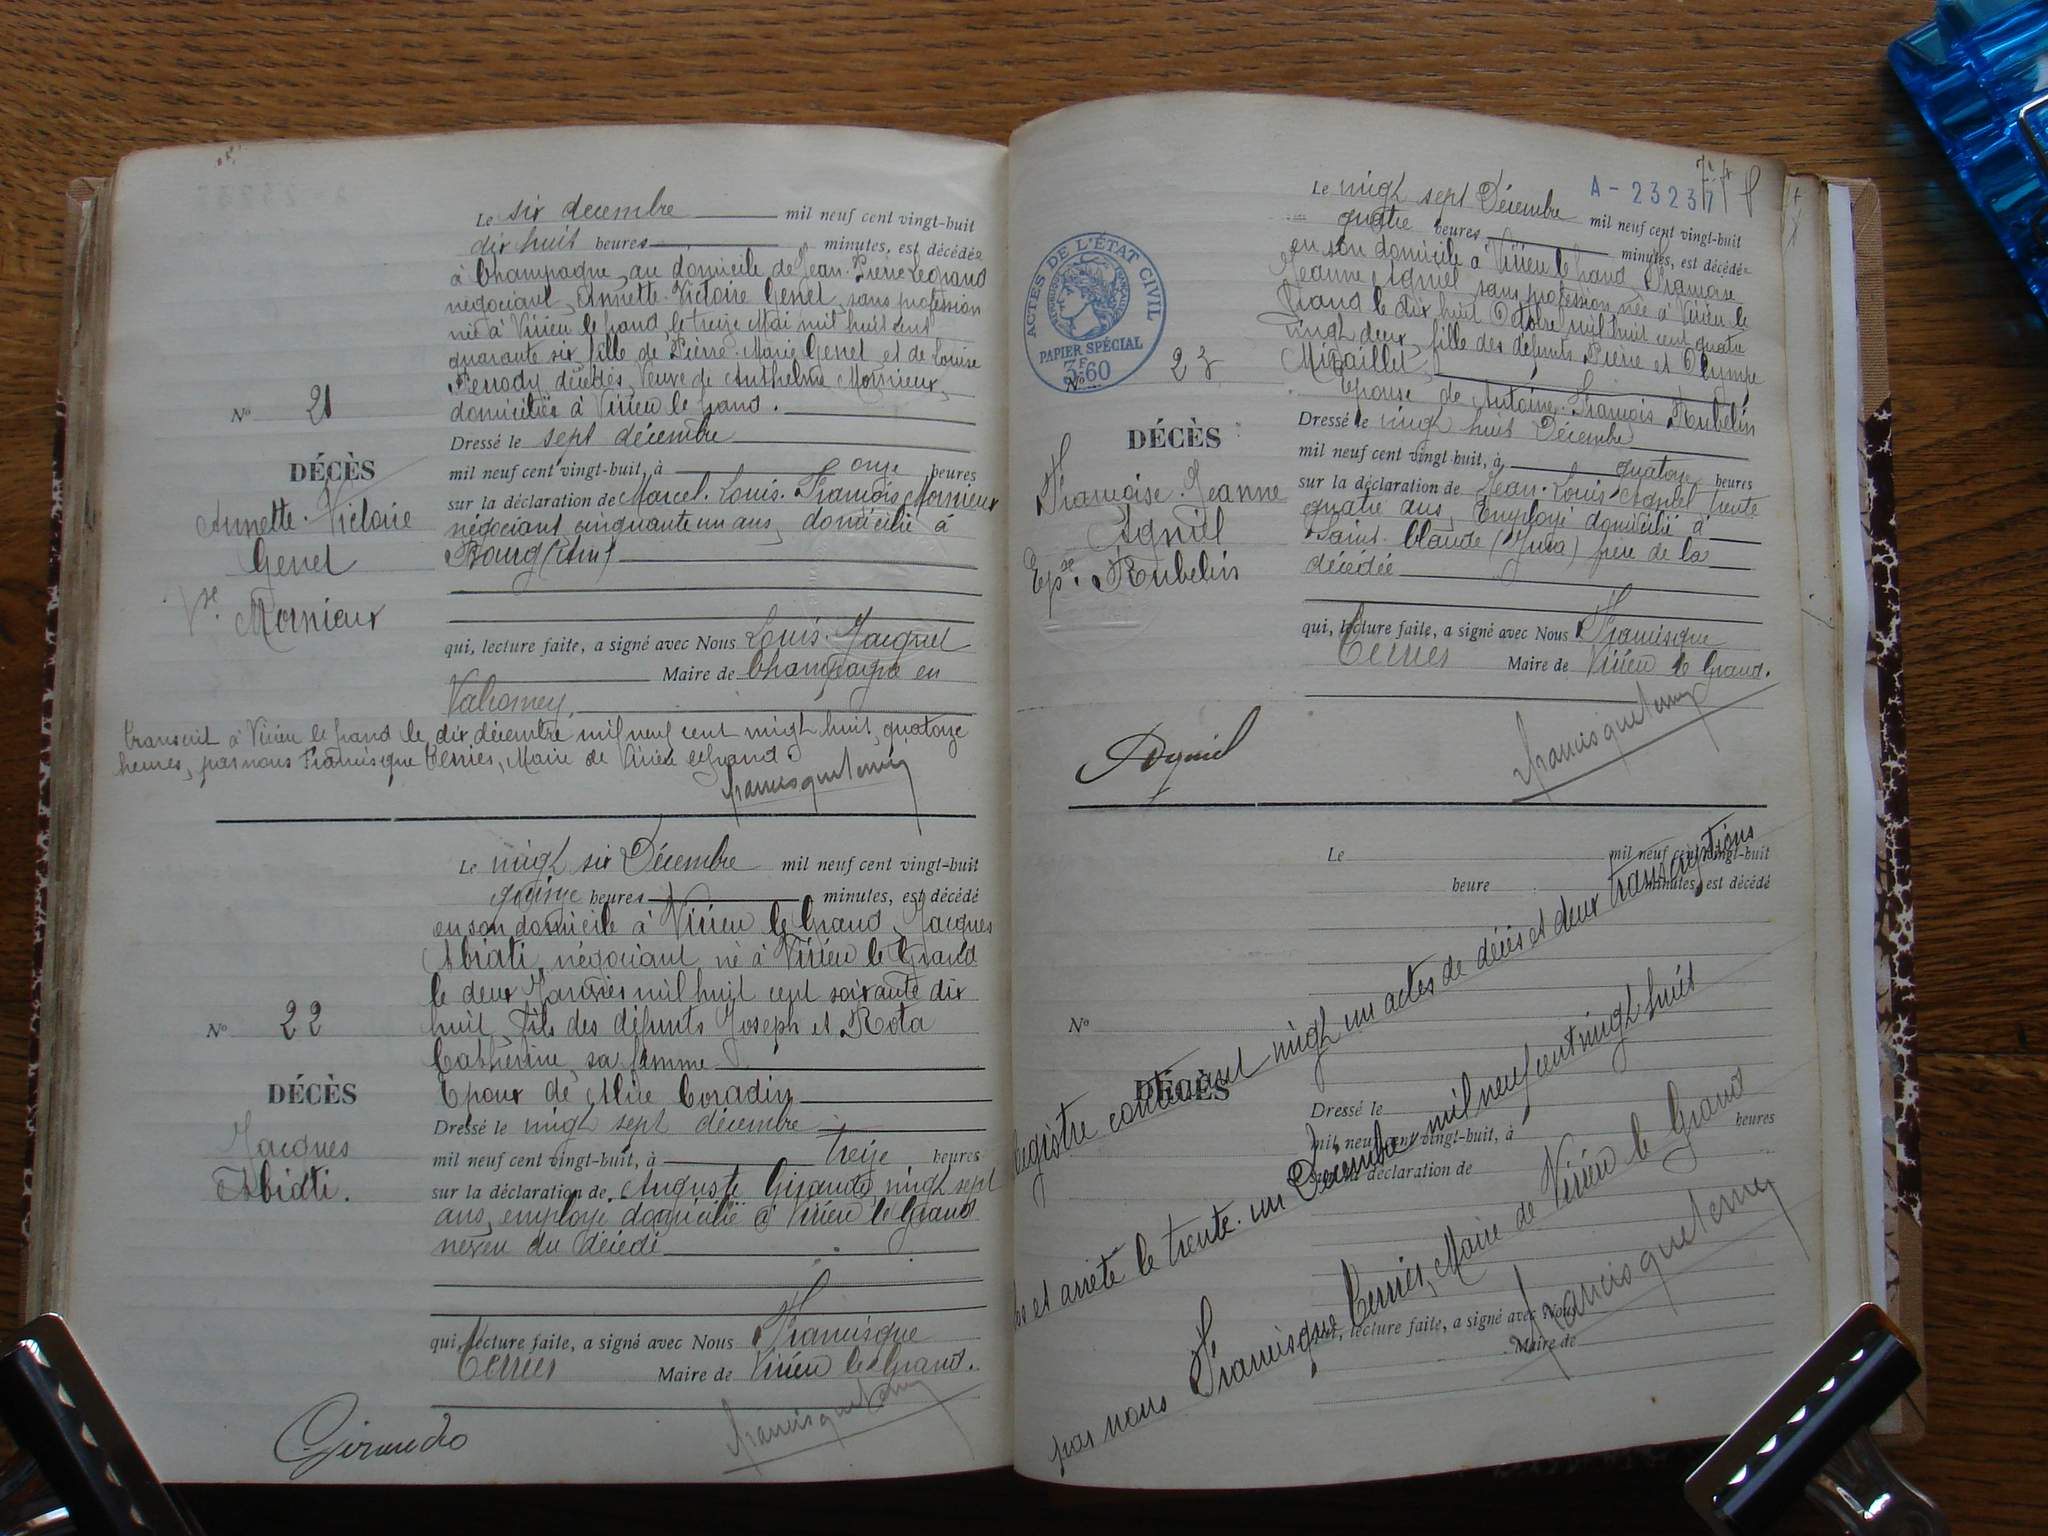 Le six decembre mil neuf cent vingt-huit
dix huit heures minutes, est décédée
à Champagne, au domicile de Jean-Pierre Legrand
négociant, Annette-Victoire Genet, sans profession
née à Virieu le Grand, le treize Mai mil huit cent
quarante six, fille de Pierre-Marie Genet et de Louise
décédés, Veuve de Anthelme Mornieux,
domiciliée à Virieu le Grand.
Nº 21
Dressé le sept décembre
DÉCÈS
mil neuf cent vingt-huit, à onze heures
Annette-Victoire
Genet
Vve
Mornieux
sur la déclaration de Marcel-Louis-François Mornieux
négociant, cinquante un ans, domicilié à
Bourg (Ain)
qui, lecture faite, a signé avec Nous Louis Jacquet
Maire de Champagne en
Valromey.
transcrit à Virieu le Grand le dix décembre mil neuf cent vingt huit, quatorze
heures, par nous Francisque Terrier, Maire de Virieu le Grand.
Le vingt six Décembre mil neuf cent vingt-huit
quinze heures minutes, est décédé
en son domicile à Virieu le Grand, Jacques
Abiati, négociant né à Virieu le Grand
le deux Janvier mil huit cent soixante dix
huit, fils des défunts Joseph et Rota
Catherine, sa femme
Nº 22
DÉCÈS
Jacques
Abiati.
Epoux de Alice Coradin
Dressé le vingt sept décembre
mil neuf cent vingt-huit, à treize heures
sur la déclaration de Auguste Giraudo, vingt sept
ans, employé domicilié à Virieu le Grand
neveu du décédé
qui, lecture faite, a signé avec Nous Francisque
Terrier Maire de Virieu le Grand.
Giraudo
A-23237
Le vingt sept Décembre mil neuf cent vingt-huit
quatre heures minutes, est décédée
en son domicile à Virieu le Grand, Françoise
Jeanne Agniel, sans profession, née à Virieu le
Grand le dix huit Octobre mil huit cent quatre
vingt deux, fille des défunts Pierre et Olympe
Epouse de Antoine-François Rubelin
ACTES DE L'ÉTAT CIVIL
PAPIER SPÉCIAL
3F60
Nº 23
DÉCÈS
Françoise-Jeanne
Agniel
Epse. Rubelin
Dressé le vingt huit Décembre
mil neuf cent vingt-huit, à quatorze heures
sur la déclaration de Jean-Louis Agniel, trente
quatre ans, Employé domicilié à
Saint-Claude (Jura) frère de la
décédée
qui, lecture faite, a signé avec Nous Francisque
Terrier Maire de Virieu le Grand.
Agniel
Le mil neuf cent vingt-huit
heure minutes, est décédé
Nº
DÉCÈS
Dressé le
mil neuf cent vingt-huit, à heures
sur la déclaration de
qui, lecture faite, a signé avec Nous
Maire de
Registre contenant vingt un actes de décès et deux transcriptions
et arrêté le trente-un Décembre mil neuf cent vingt huit
par nous Francisque Terrier, Maire de Virieu le Grand